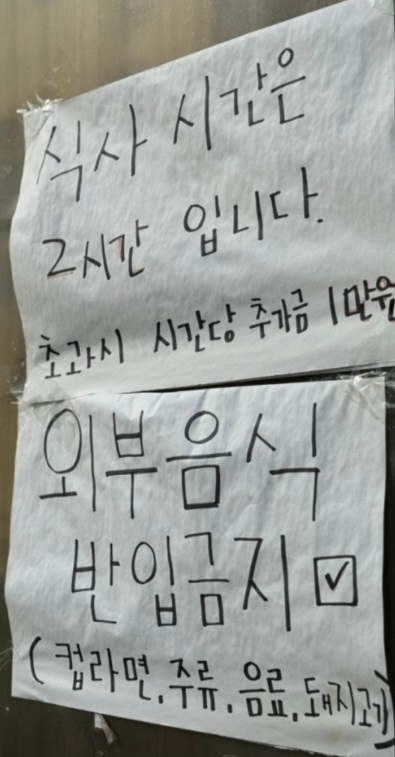 식사 시간은
2시간 입니다.
초과시 시간당 추가금 1만원
외부음식
반입금지 ☑
(컵라면, 주류, 음료, 돼지고기)